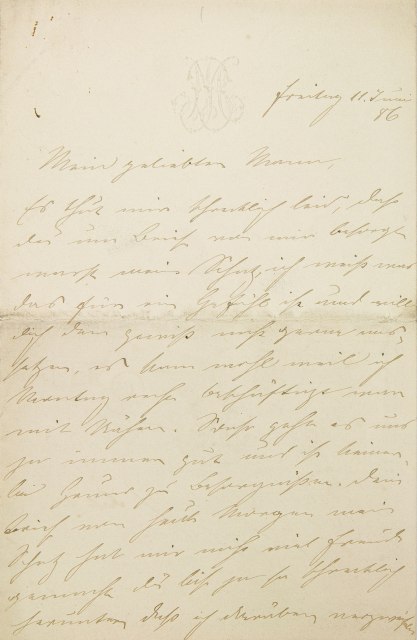 Freitag 11. Juni
86
Mein geliebter Mann,
Es thut mir schrecklich leid, daß
du um Brief von mir besorgt
warst mein Schatz, ich weiß was
das für ein Gefühl ist und will
dich dem gewiß nicht gerne aus-
setzen, es kam wohl weil ich
Montag sehr beschäftigt war
mit Nähen. Sonst geht es uns
ja immer gut und ist keiner-
lei Grund zu Besorgnissen. Dein
Brief von heute Morgen mein
Schatz hat mir nicht viel Freude
gemacht du bist ja so schrecklich
herunter, daß ich darüber